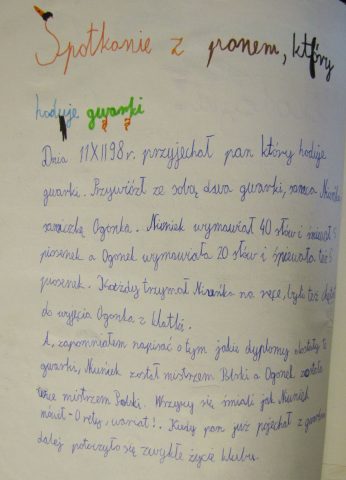 Spotkanie z panem, który
hoduje gwarki
Dnia 11XII98r. przyjechał pan który hoduje
gwarki. Przywiózł ze sobą dwa gwarki,
samiczkę Ogonka. Niuniek wymawiał 40 słów i śpiewał 5
piosenek a Ogonek wymawiała 20 słów i śpiewała też 5
piosenek. Każdy trzymał Niuńka na ręce, byli też chętni
do wyjęcia Ogonka z klatki.
A, zapomniałem napisać o tym jakie dyplomy dostały te
gwarki, Niuniek został mistrzem Polski a Ogonek została
też mistrzem Polski. Wszyscy się śmiali jak Niuniek
mówił - O rety, wariat!. Kiedy pan już pojechał z gwarkami
dalej potoczyło się zwykłe życie klubu.